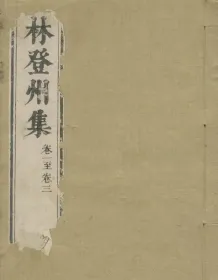 林登州集
卷一至卷三